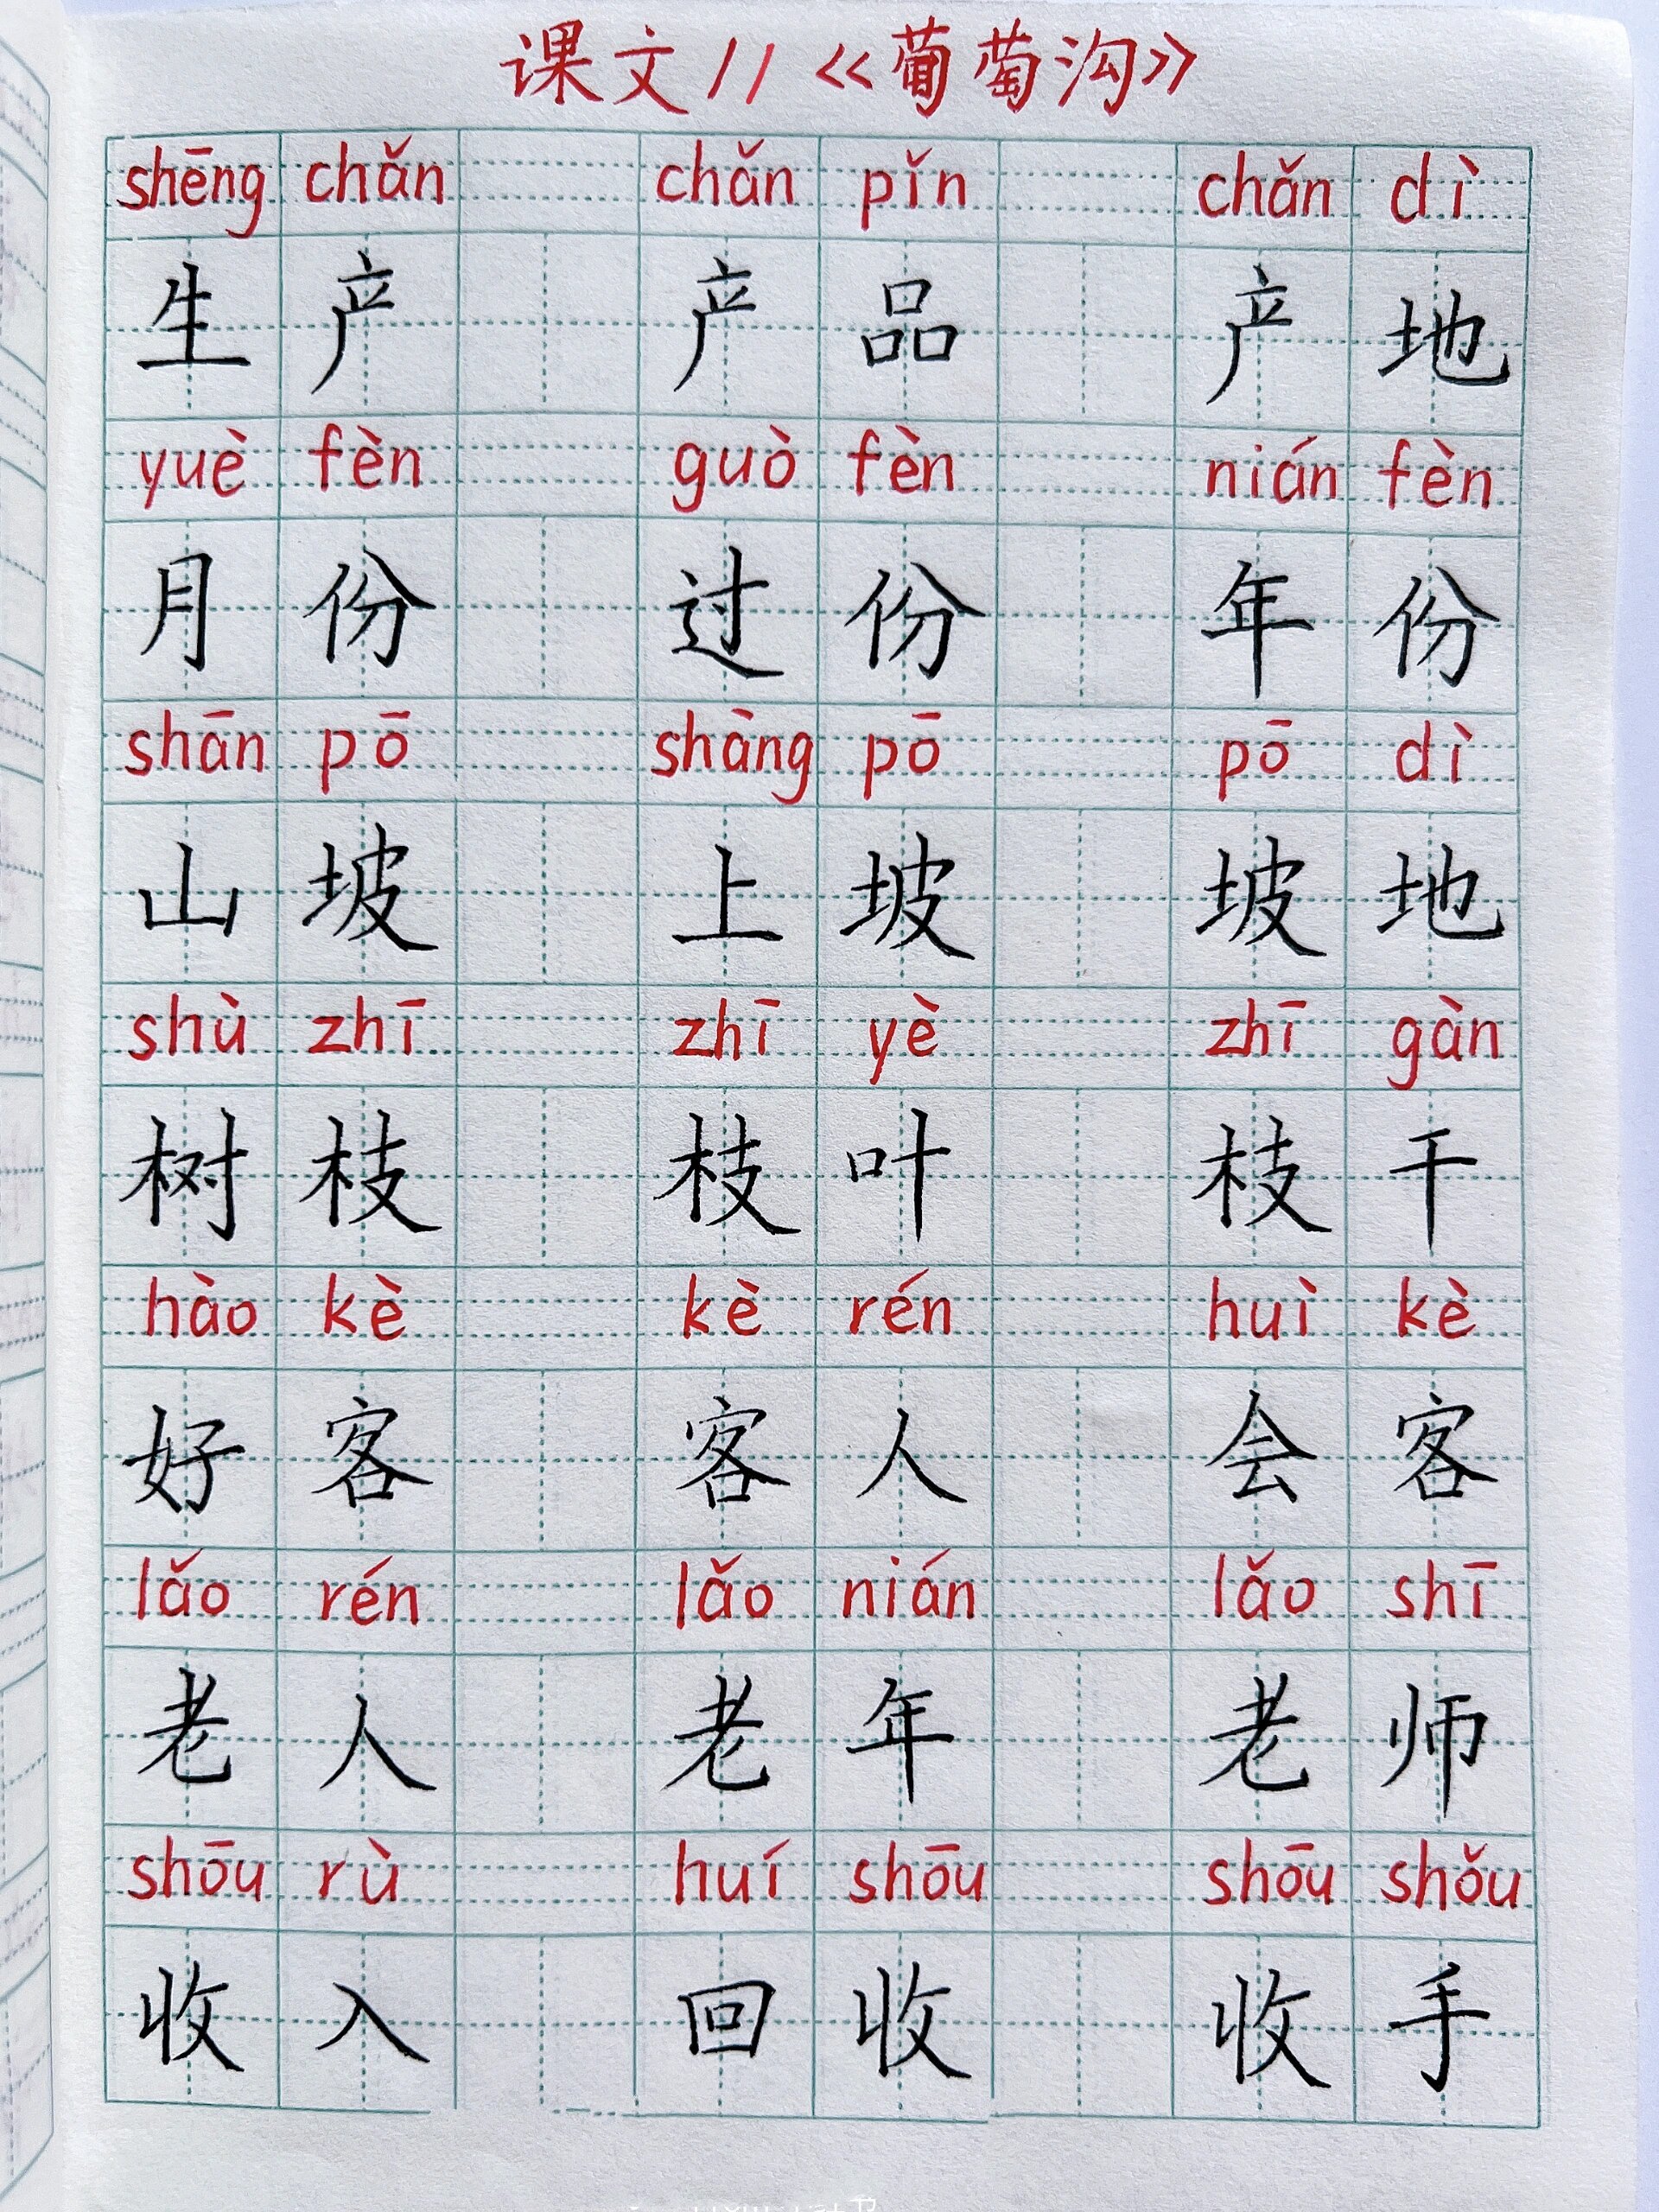 课文11《葡萄沟》
shēng chǎn chǎn pǐn chǎn dì
生产 产品 产地
yuè fèn guò fèn nián fèn
月份 过份 年份
shān pō shàng pō pō dì
山坡 上坡 坡地
shù zhī zhī yè zhī gàn
树枝 枝叶 枝干
hào kè kè rén huì kè
好客 客人 会客
lǎo rén lǎo nián lǎo shī
老人 老年 老师
shōu rù huí shōu shōu shǒu
收入 回收 收手